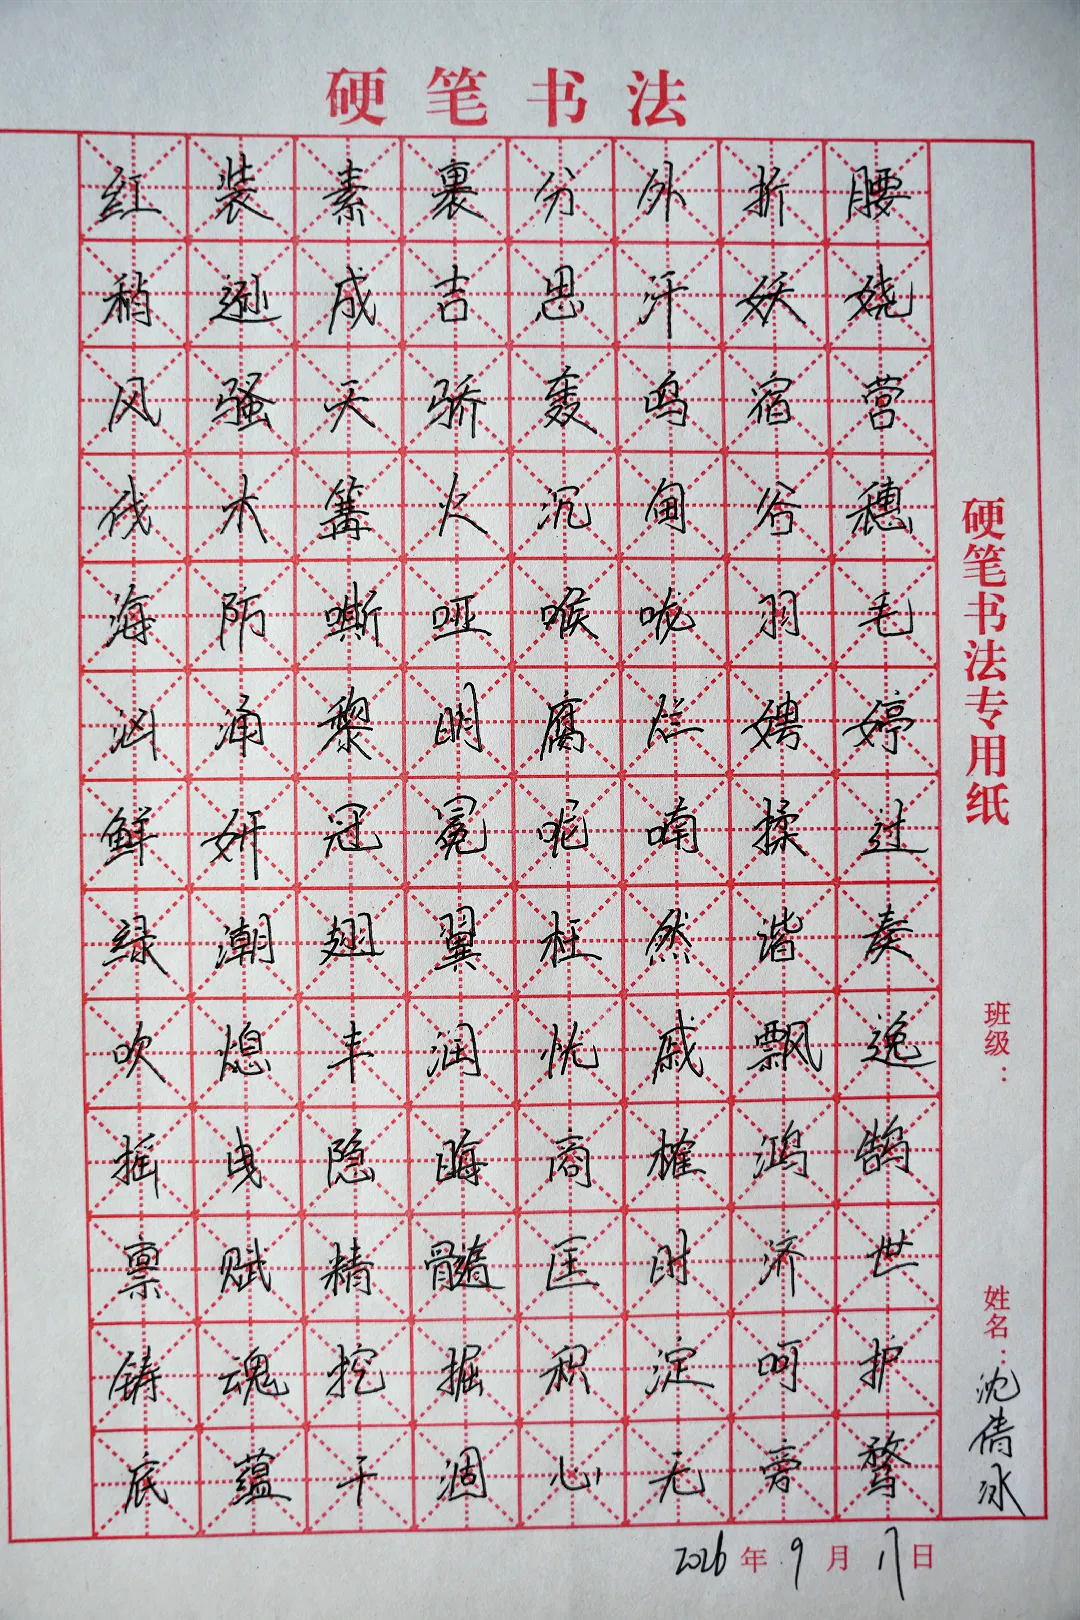 硬笔书法
红装素裹分外折腰
稍逊成吉思汗妖娆
风骚天骄轰鸣宿营
伐木篝火沉甸谷穗
海陌嘶哑喉咙羽毛
汹涌黎明腐烂娉婷
鲜妍冠冕呢喃揉过
绿潮翅翼枉然谐奏
吹熄丰润恍戚飘逸
摇曳隐晦商榷鸿鹄
禀赋精髓匡时济世
铸魂挖掘积淀呵护
底蕴干涸心无旁骛
硬笔书法专用纸
班级：
姓名：沈倩冰
2026年9月17日